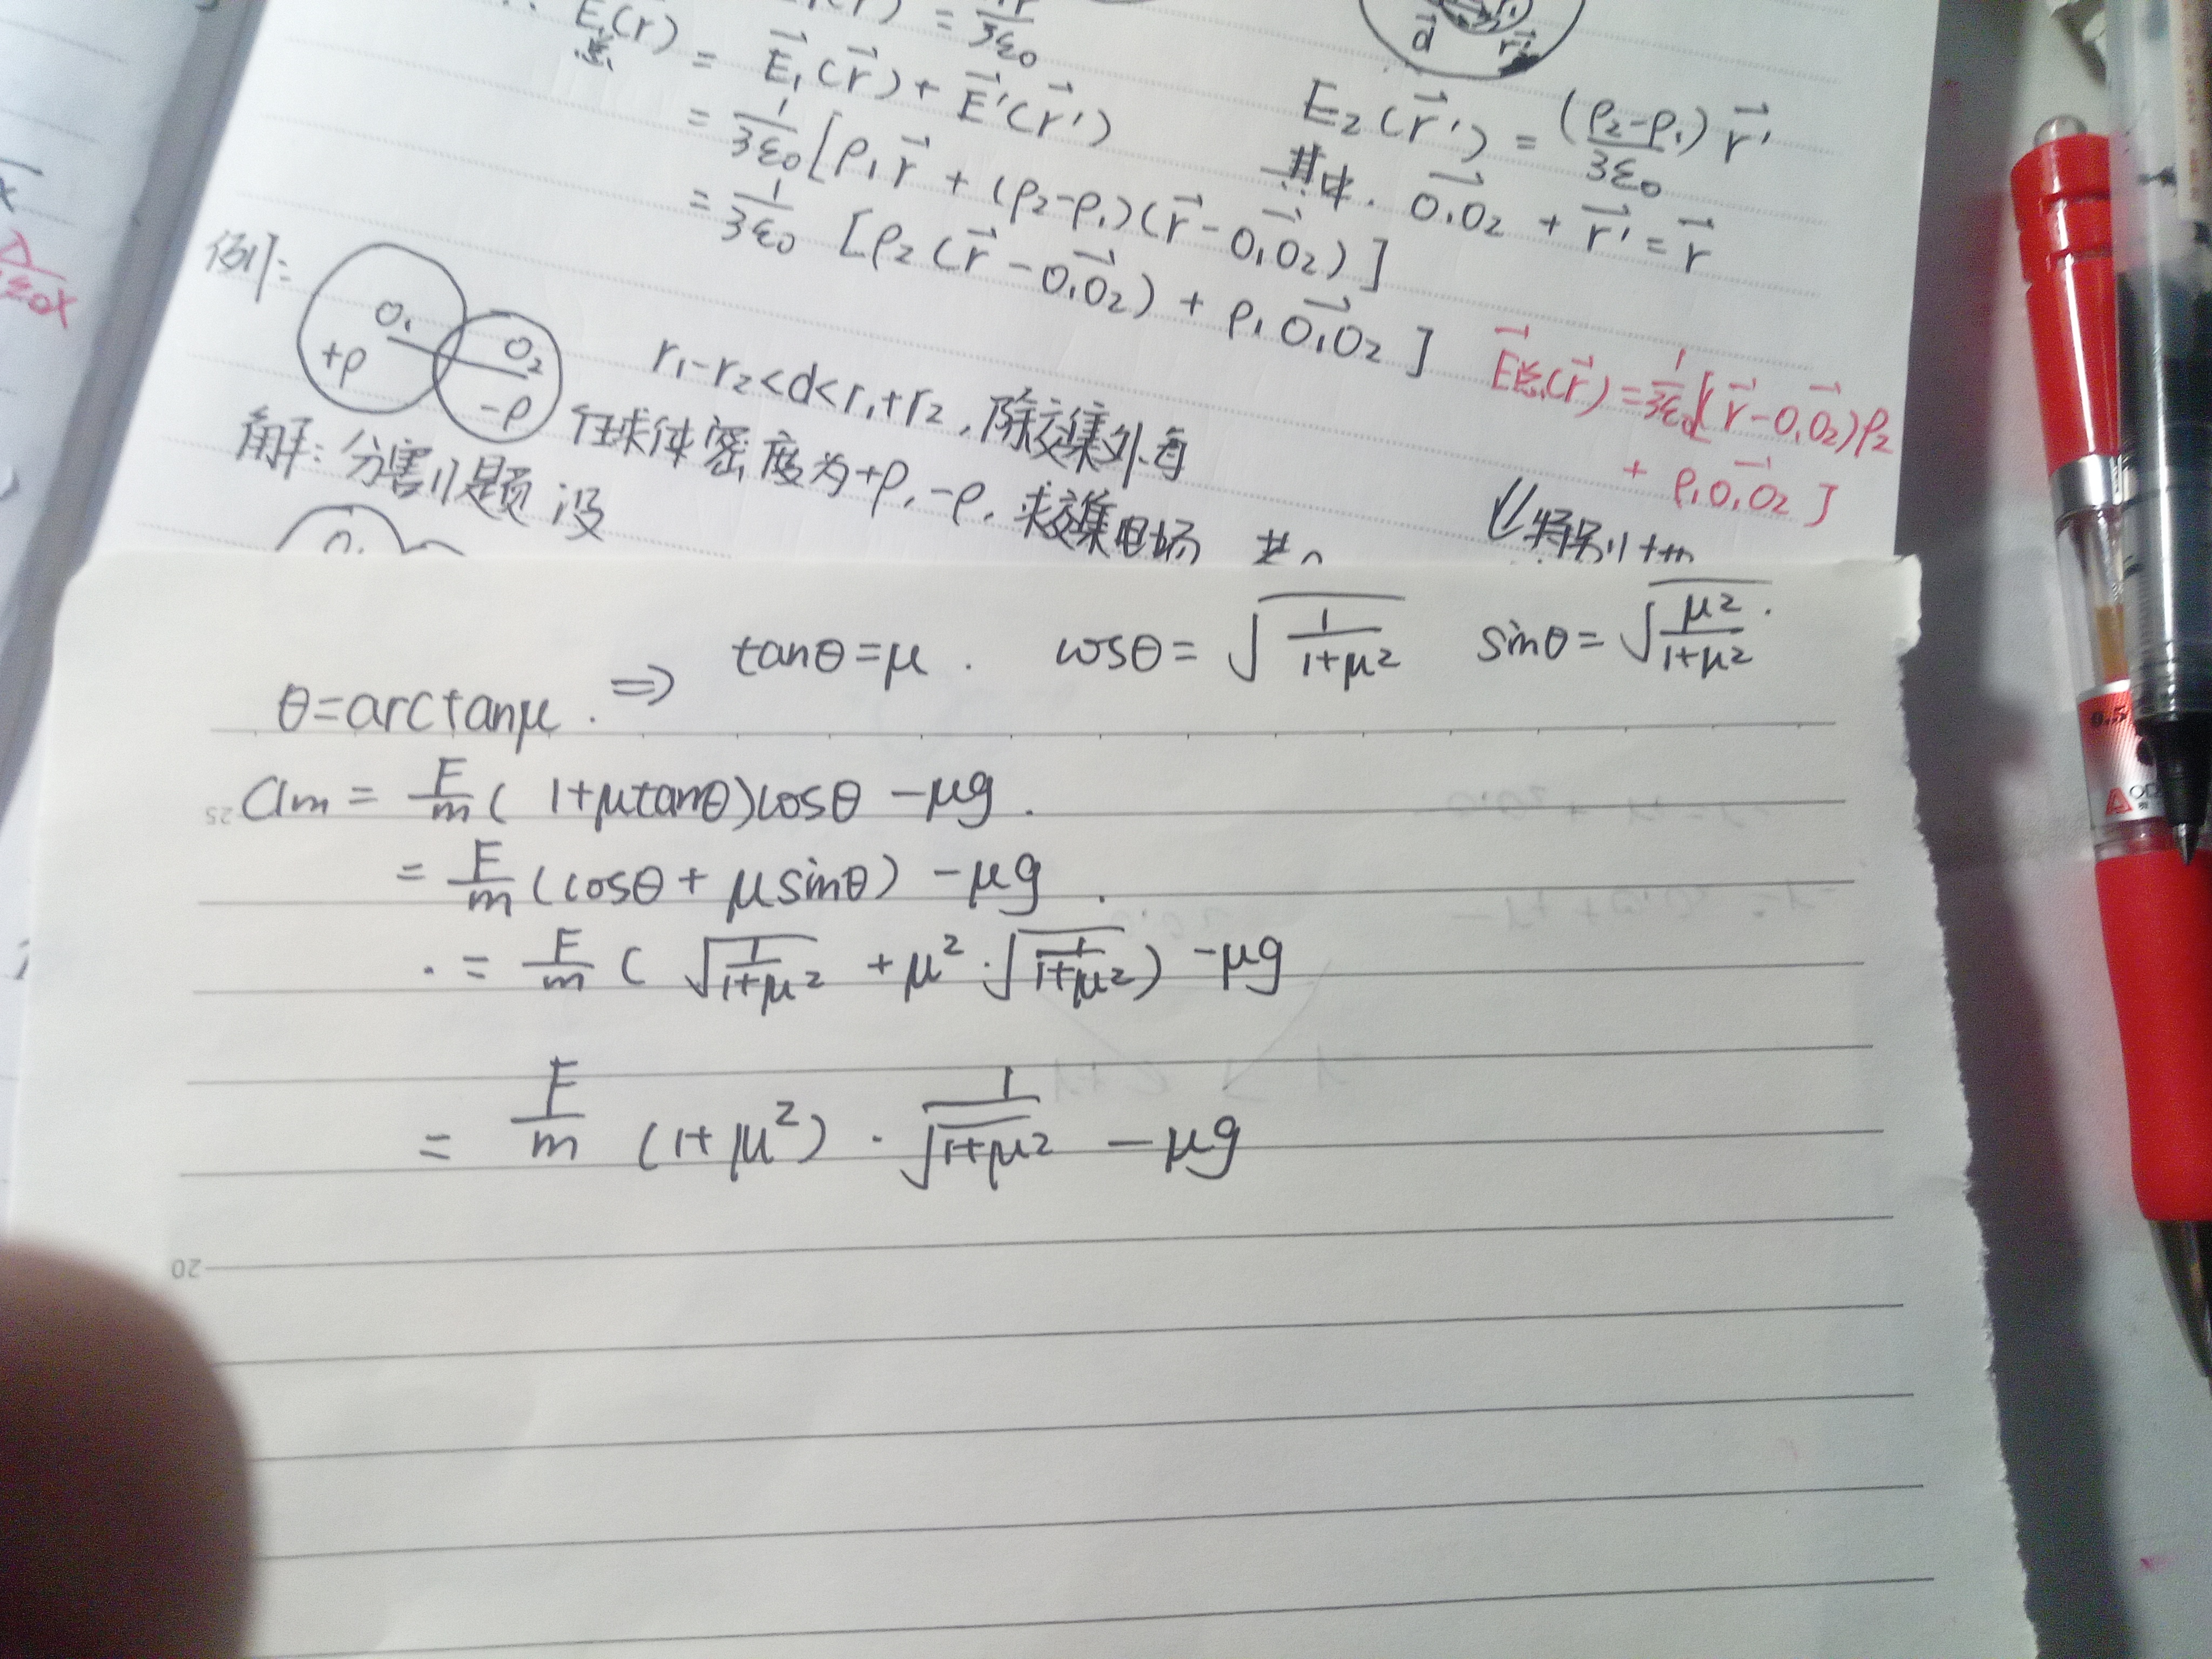 = \vec{E_1}(\vec{r}) + \vec{E}'(\vec{r}')
= \frac{1}{3ε_0}[ρ_1\vec{r} + (ρ_2-ρ_1)(\vec{r}-\vec{O_1O_2})]
= \frac{1}{3ε_0} [ρ_2(\vec{r}-\vec{O_1O_2}) + ρ_1\vec{O_1O_2}]
\vec{d}
E_2(\vec{r}') = \frac{(ρ_2-ρ_1)}{3ε_0}\vec{r}'
其中. \vec{O_1O_2} + \vec{r}' = \vec{r}
\vec{E}总(\vec{r}) = \frac{1}{3ε_0}[(\vec{r}-\vec{O_1O_2})ρ_2
+ ρ_1\vec{O_1O_2}]
例:
O_1
+ρ
O_2
-ρ
r_1-r_2<d<r_1+r_2,除交集外每
球体密度为+ρ,-ρ,求交集电场
解:分割题 设
O_1
特别
θ=arctanμ. ⇒ tanθ=μ. cosθ=\sqrt{\frac{1}{1+μ^2}} sinθ=\sqrt{\frac{μ^2}{1+μ^2}}.
25
a_m = \frac{F}{m}(1+μtanθ)cosθ -μg.
= \frac{F}{m}(cosθ+μsinθ) -μg.
= \frac{F}{m}(\sqrt{\frac{1}{1+μ^2}} +μ^2·\sqrt{\frac{1}{1+μ^2}}) -μg
= \frac{F}{m}(1+μ^2)·\frac{1}{\sqrt{1+μ^2}} -μg
20
0.5